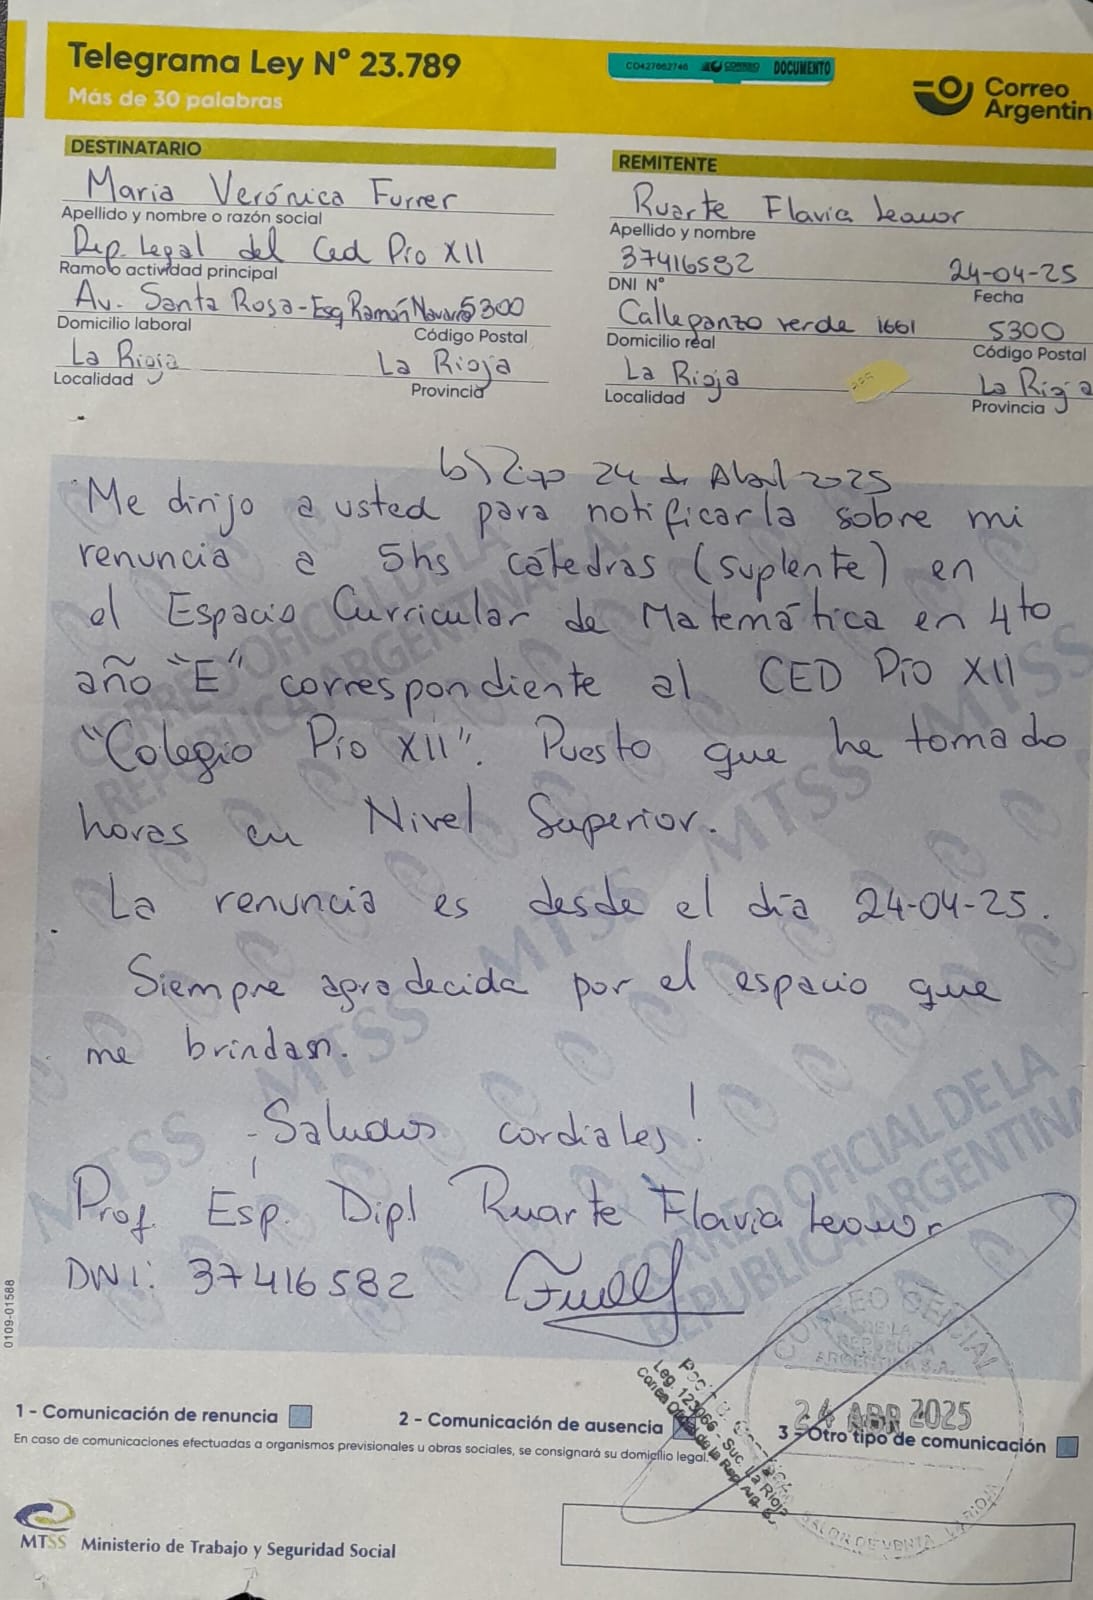 Telegrama Ley N° 23.789
Más de 30 palabras
CD427662746 CORREO DOCUMENTO
Correo
Argentin
DESTINATARIO
Maria Verónica Furrer
Apellido y nombre o razón social
Dep. Legal del Ced Pío XII
Ramo o actividad principal
Av. Santa Rosa - Esq Ramón Navarro 5300
Domicilio laboral Código Postal
La Rioja La Rioja
Localidad Provincia
REMITENTE
Ruarte Flavia Leonor
Apellido y nombre
37416582 24-04-25
DNI N° Fecha
Calle panzo verde 1661 5300
Domicilio real Código Postal
La Rioja La Rioja
Localidad Provincia
24 de Abril 2025
Me dirijo a usted para notificarla sobre mi
renuncia a 5hs cátedras (suplente) en
el Espacio Curricular de Matemática en 4to
año "E" correspondiente al CED Pío XII
"Colegio Pío XII". Puesto que he tomado
horas en Nivel Superior.
La renuncia es desde el día 24-04-25.
Siempre agradecida por el espacio que
me brindan.
Saludos cordiales!
Prof. Esp. Dipl Ruarte Flavia Leonor
DNI: 37416582
0109-01588
CORREO OFICIAL
DE LA
REPUBLICA
ARGENTINA S.A.
24 ABR 2025
SALON DE VENTA LA RIOJA
Leg. 123066 - Suc. La Rioja
Correo Oficial de la Rep. Arg. S.
1 - Comunicación de renuncia
2 - Comunicación de ausencia
3 - Otro tipo de comunicación
En caso de comunicaciones efectuadas a organismos previsionales u obras sociales, se consignará su domicilio legal.
MTSS Ministerio de Trabajo y Seguridad Social
CORREO OFICIAL DE LA
REPUBLICA ARGENTINA
MTSS